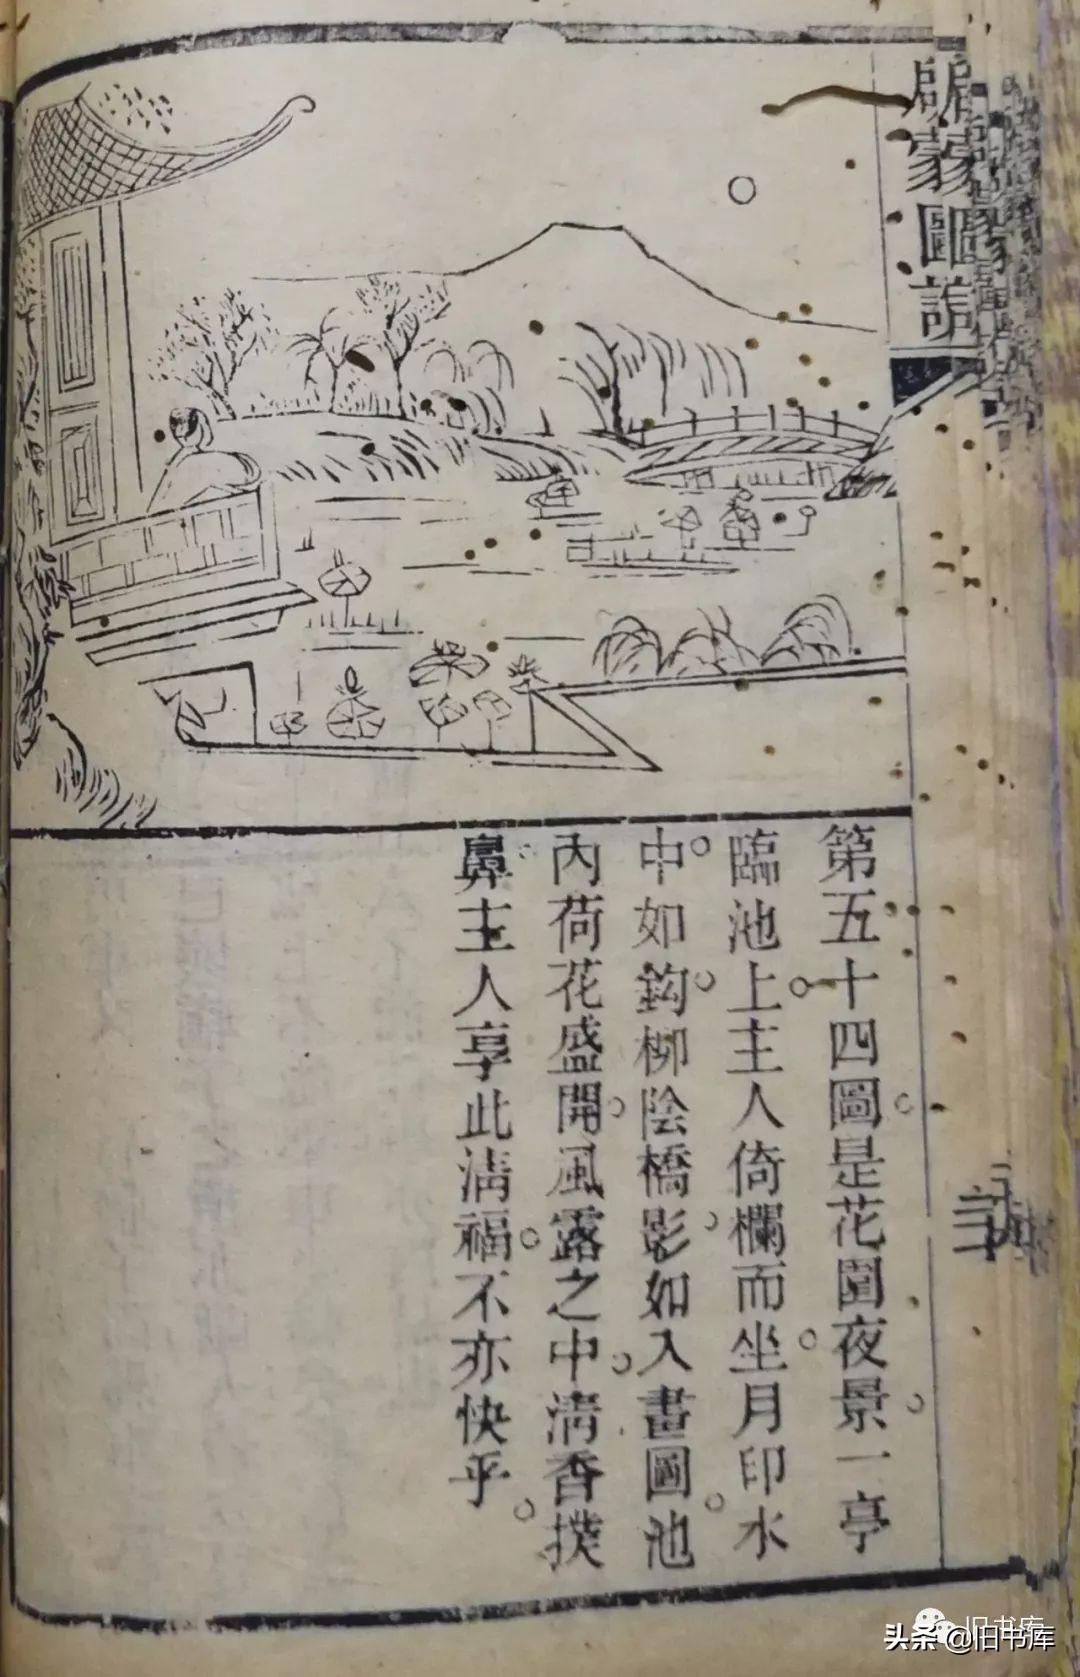 啟蒙圖說
第五十四圖。是花園夜景。一亭
臨池上。主人倚欄而坐。月印水
中。如鈎。柳陰橋影。如入畫圖。池
內荷花盛開。風露之中。清香撲
鼻。主人享此清福。不亦快乎。
头条 @旧书库
旧书库